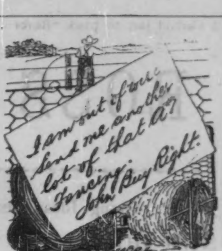 I am out of wire
Send me another
lot of that A1
Fencing.
John Buy Right.